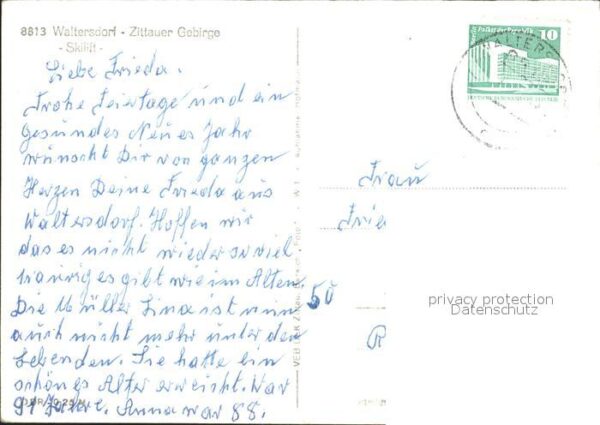 8813 Waltersdorf - Zittauer Gebirge
- Skilift -
Liebe Frieda.
Frohe Feiertage und ein
gesundes Neues Jahr
wünscht Dir von ganzen
Herzen Deine Frieda aus
Waltersdorf. Hoffen wir
das es nicht wieder so viel
trauriges gibt wie im Alten.
Die Müller Lina ist nun
auch nicht mehr unter den
Lebenden. Sie hatte ein
schönes Alter erreicht. War
91 Jahre. Anna war 88.
50
10
WALTERSDORF
Frau
Frie
R
privacy protection
Datenschutz